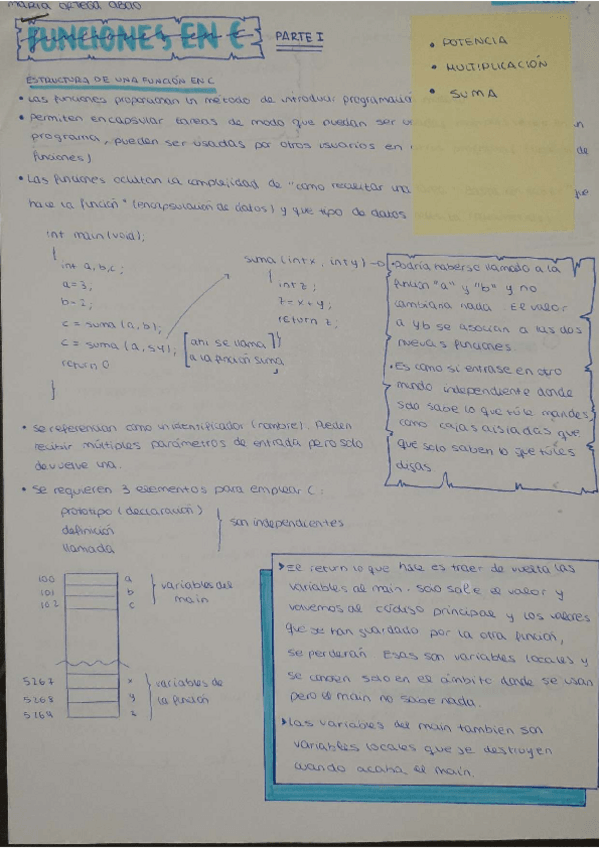 MARIA ORTEGA ABAD
FUNCIONES EN C
PARTE I
• POTENCIA
• MULTIPLICACIÓN
• SUMA
ESTRUCTURA DE UNA FUNCIÓN EN C
• Las funciones proporcionan un método de introducir programación
• Permiten encapsular tareas de modo que puedan ser
programa, pueden ser usadas por otros usuarios en de
funciones)
• Las funciones ocultan la complejidad de "como
hace la función" (encapsulación de datos) y que tipo de datos
int main(void);
{
int a,b,c;
a=3;
b=2;
c = suma (a,b);
c = suma (a,54);
return 0
}
[ahí se llama
a la función suma]
suma (int x, int y)
{
int z;
z=x+y;
return z;
}
• Podría haberse llamado a la
función "a" y "b" y no
cambiaria nada. El valor
a y b se asocian a las dos
nuevas funciones.
• Es como si entrase en otro
mundo independiente donde
solo sabe lo que tú le mandes
como cajas aisladas que
que solo saben lo que tú les
digas.
• Se referencian como un identificador (nombre). Pueden
recibir múltiples parámetros de entrada pero solo
devuelve una.
• Se requieren 3 elementos para emplear C:
prototipo (declaración)
definición
llamada
son independientes
100 a
101 b
102 c
variables del
main
5267 x
5268 y
5169 z
variables de
la función
➤ El return lo que hace es traer de vuelta las
variables al main. Solo sale el valor y
volvemos al código principal y los valores
que se han guardado por la otra función,
se perderán. Esas son variables locales y
se conocen solo en el ámbito donde se usan
pero el main no sabe nada.
➤ Las variables del main tambien son
variables locales que se destruyen
cuando acaba el main.